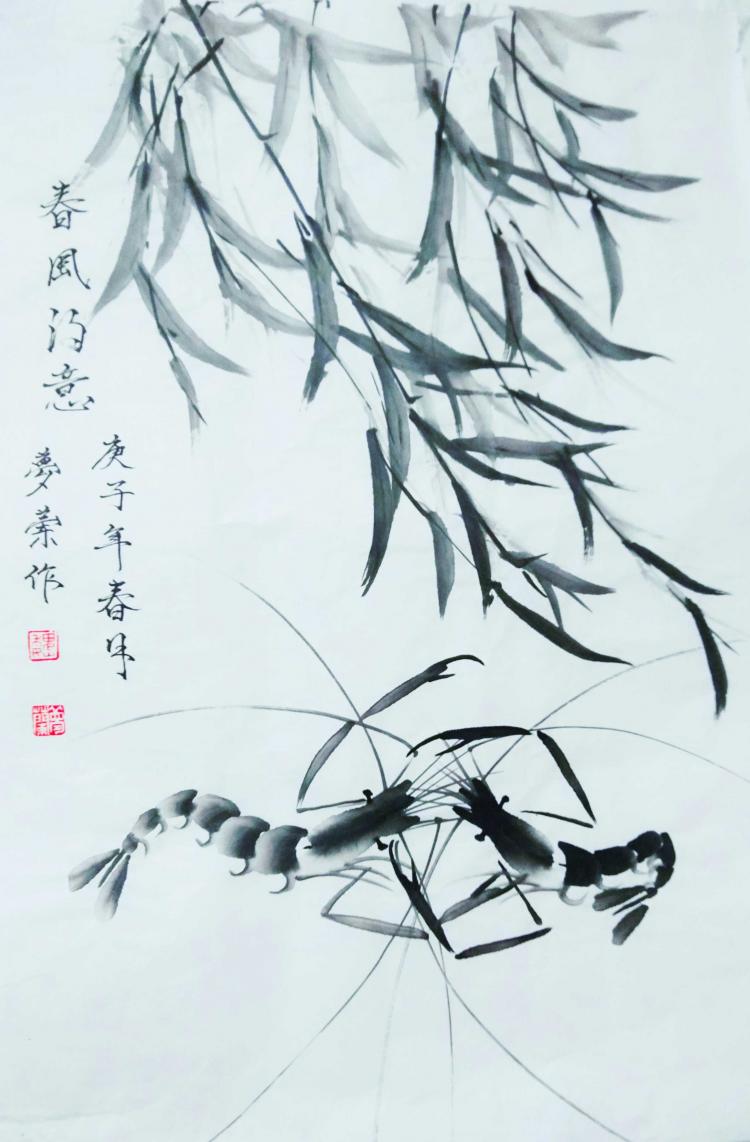 春風得意
庚子年春月
夢作